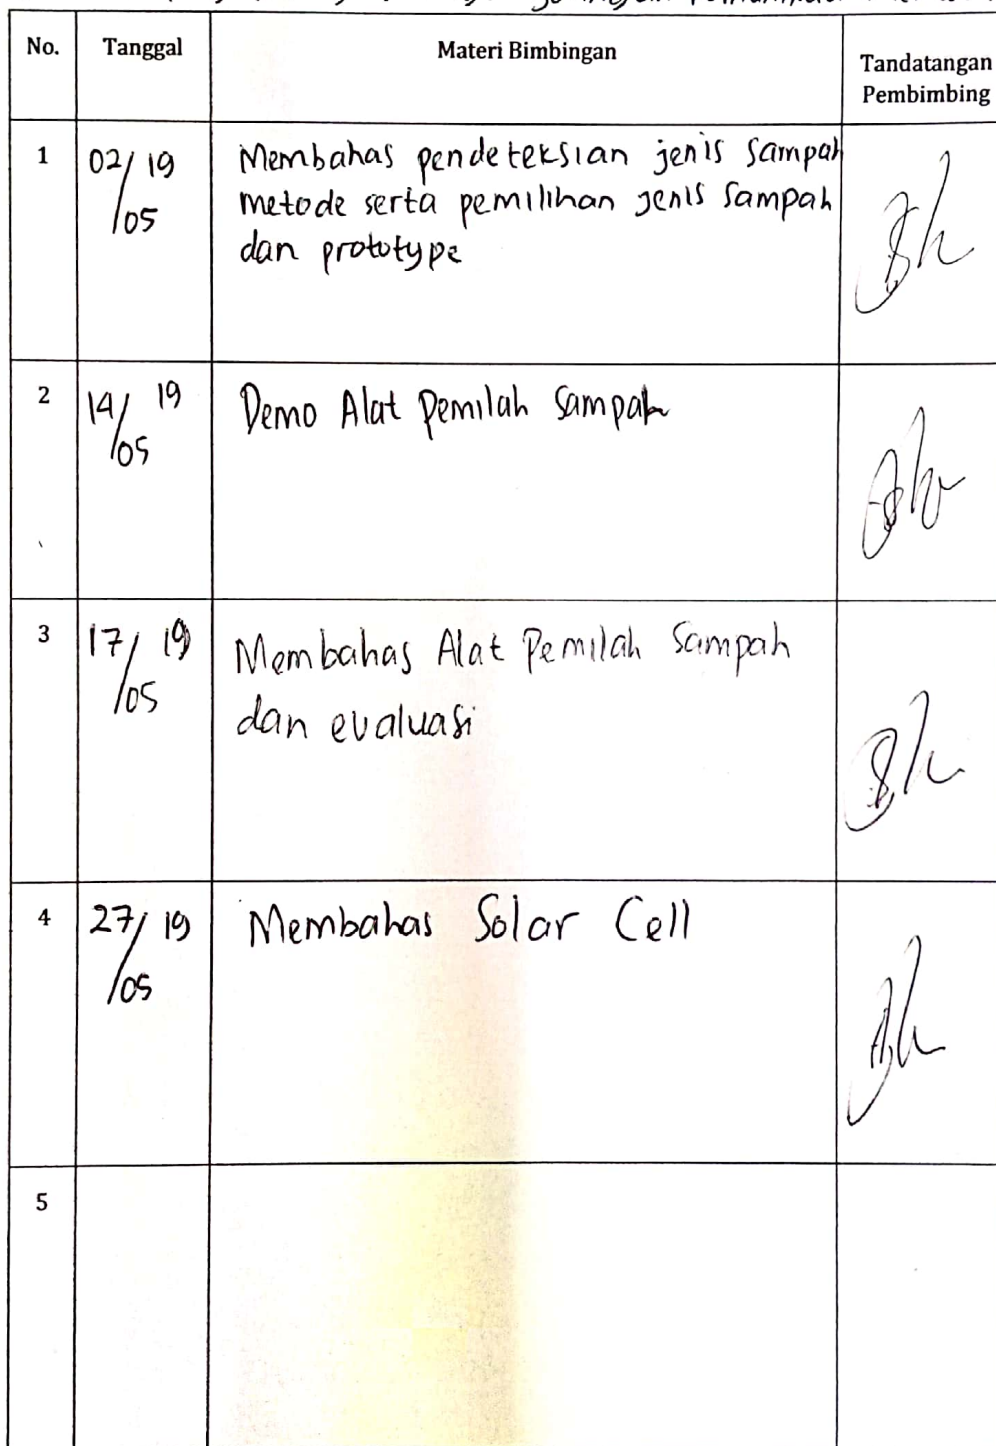 No. Tanggal Materi Bimbingan Tandatangan
Pembimbing
1 02/05 19 Membahas pendeteksian jenis sampah
metode serta pemilihan jenis sampah
dan prototype
2 14/05 19 Demo Alat Pemilah Sampah
3 17/05 19 Membahas Alat Pemilah Sampah
dan evaluasi
4 27/05 19 Membahas Solar Cell
5